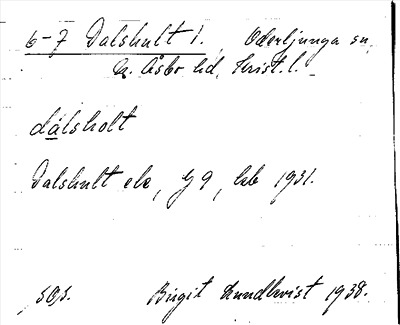 6-7 Dalshult 1. Oderljunga sn,
N. Åsbo hd, Krist. l.
dálsholt
Dalshult ek, G 9, kb 1931.
SOS. Birgit Lundkvist 1938.